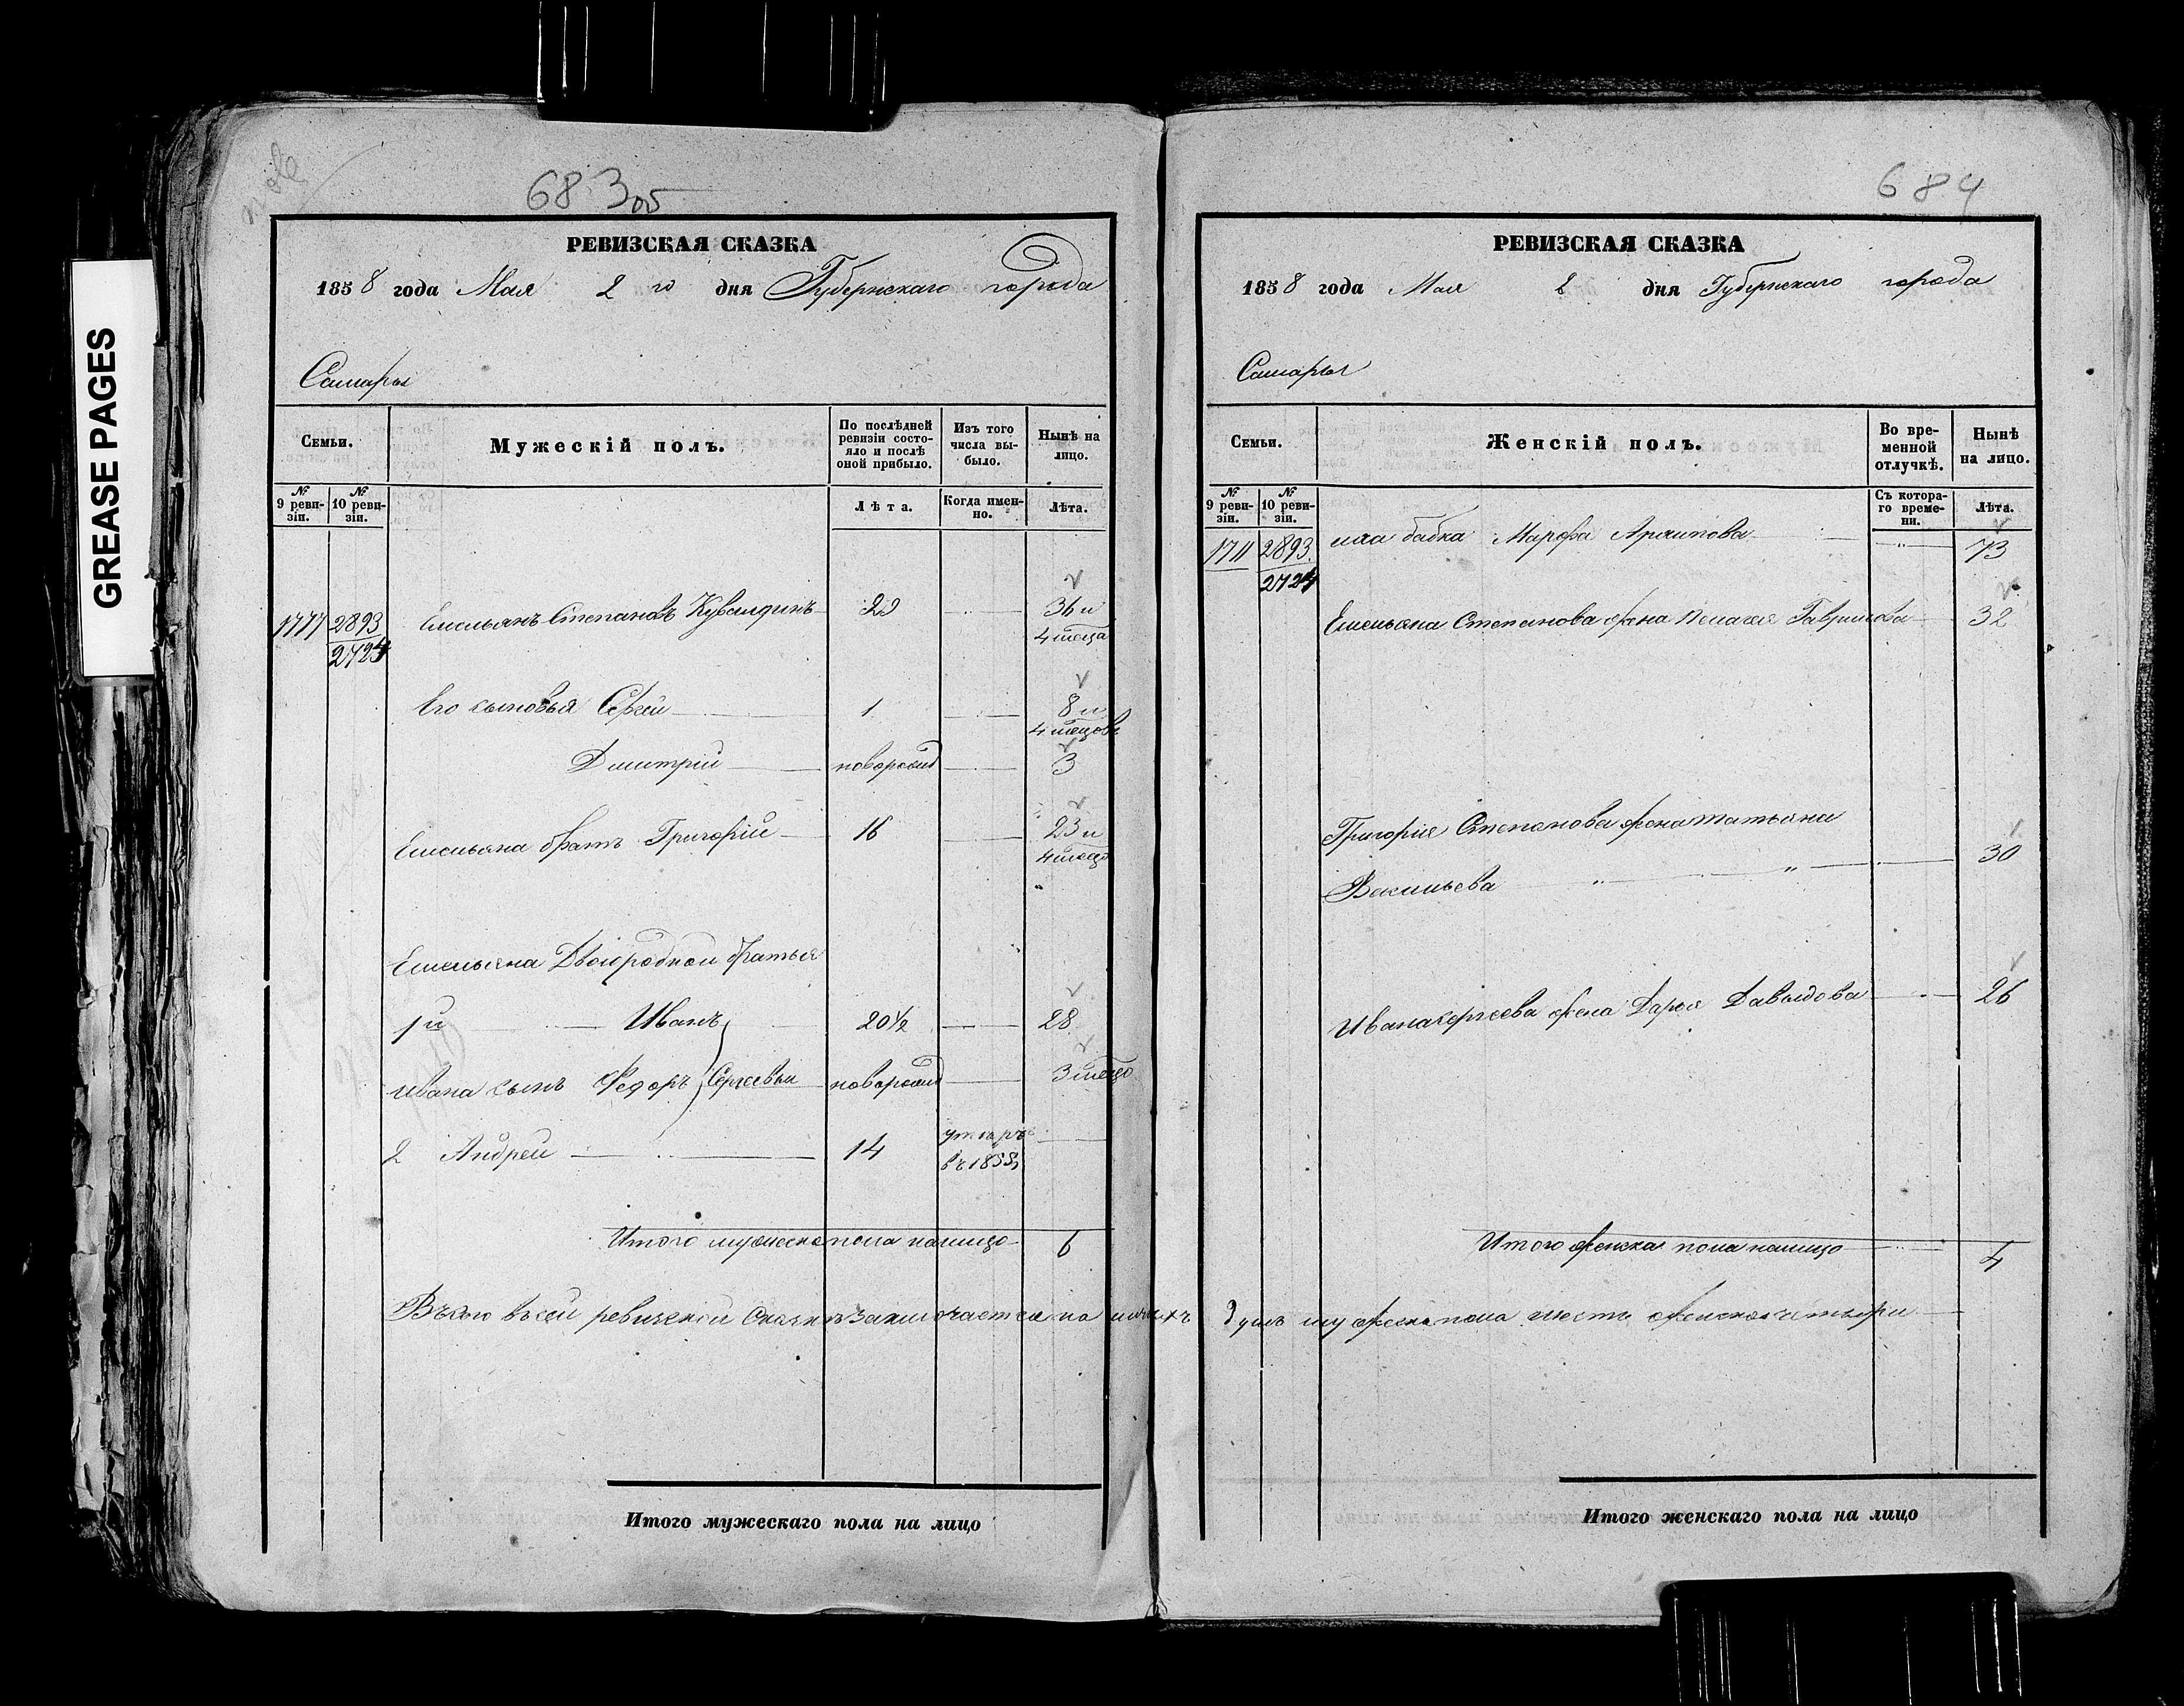 GREASE PAGES
683 об
РЕВИЗСКАЯ СКАЗКА
1858 года Мая 2 го дня Губернскаго города
Самары
Семьи.
Мужескій полъ.
По послѣдней ревизіи состояло и послѣ оной прибыло.
Изъ того числа выбыло.
Нынѣ на лицо.
№ 9 ревизіи.
№ 10 ревизіи.
Лѣта.
Когда именно.
Лѣта.
2893 Емельянъ Степановъ Кувалдинъ 36 и
4 меца
Его сыновья Сергей 1 8 и
4 мецовъ
Дмитрий новорожд 3
Емельяна братъ Григорий 16 23 и
4 меца
Емельяна Двоюродной братья
1й Иванъ 20 1/2 28
Ивана сынъ Федоръ Сергеевы новорожд 3 меца
2 Андрей 14 умеръ
въ 1855
Итого мужеска пола налицо 6
Всего въ сей ревизской сказкѣ заключается на
Итого мужескаго пола на лицо
684
РЕВИЗСКАЯ СКАЗКА
1858 года Мая 2 дня Губернскаго города
Самары
Семьи.
Женскій полъ.
Во временной отлучкѣ.
Нынѣ на лицо.
№ 9 ревизіи.
№ 10 ревизіи.
Съ котораго времени.
Лѣта.
1711 2893 бабка Марфа Архипова " 73
2724
Емельяна Степанова жена Пелагея Гаврилова 32
Григорія Степанова жена татьяна
Васильева " " 30
Ивана Сергеева жена Дарья Давыдова 26
Итого женска пола налицо 4
душъ мужеска пола шесть женска четыри
Итого женскаго пола на лицо